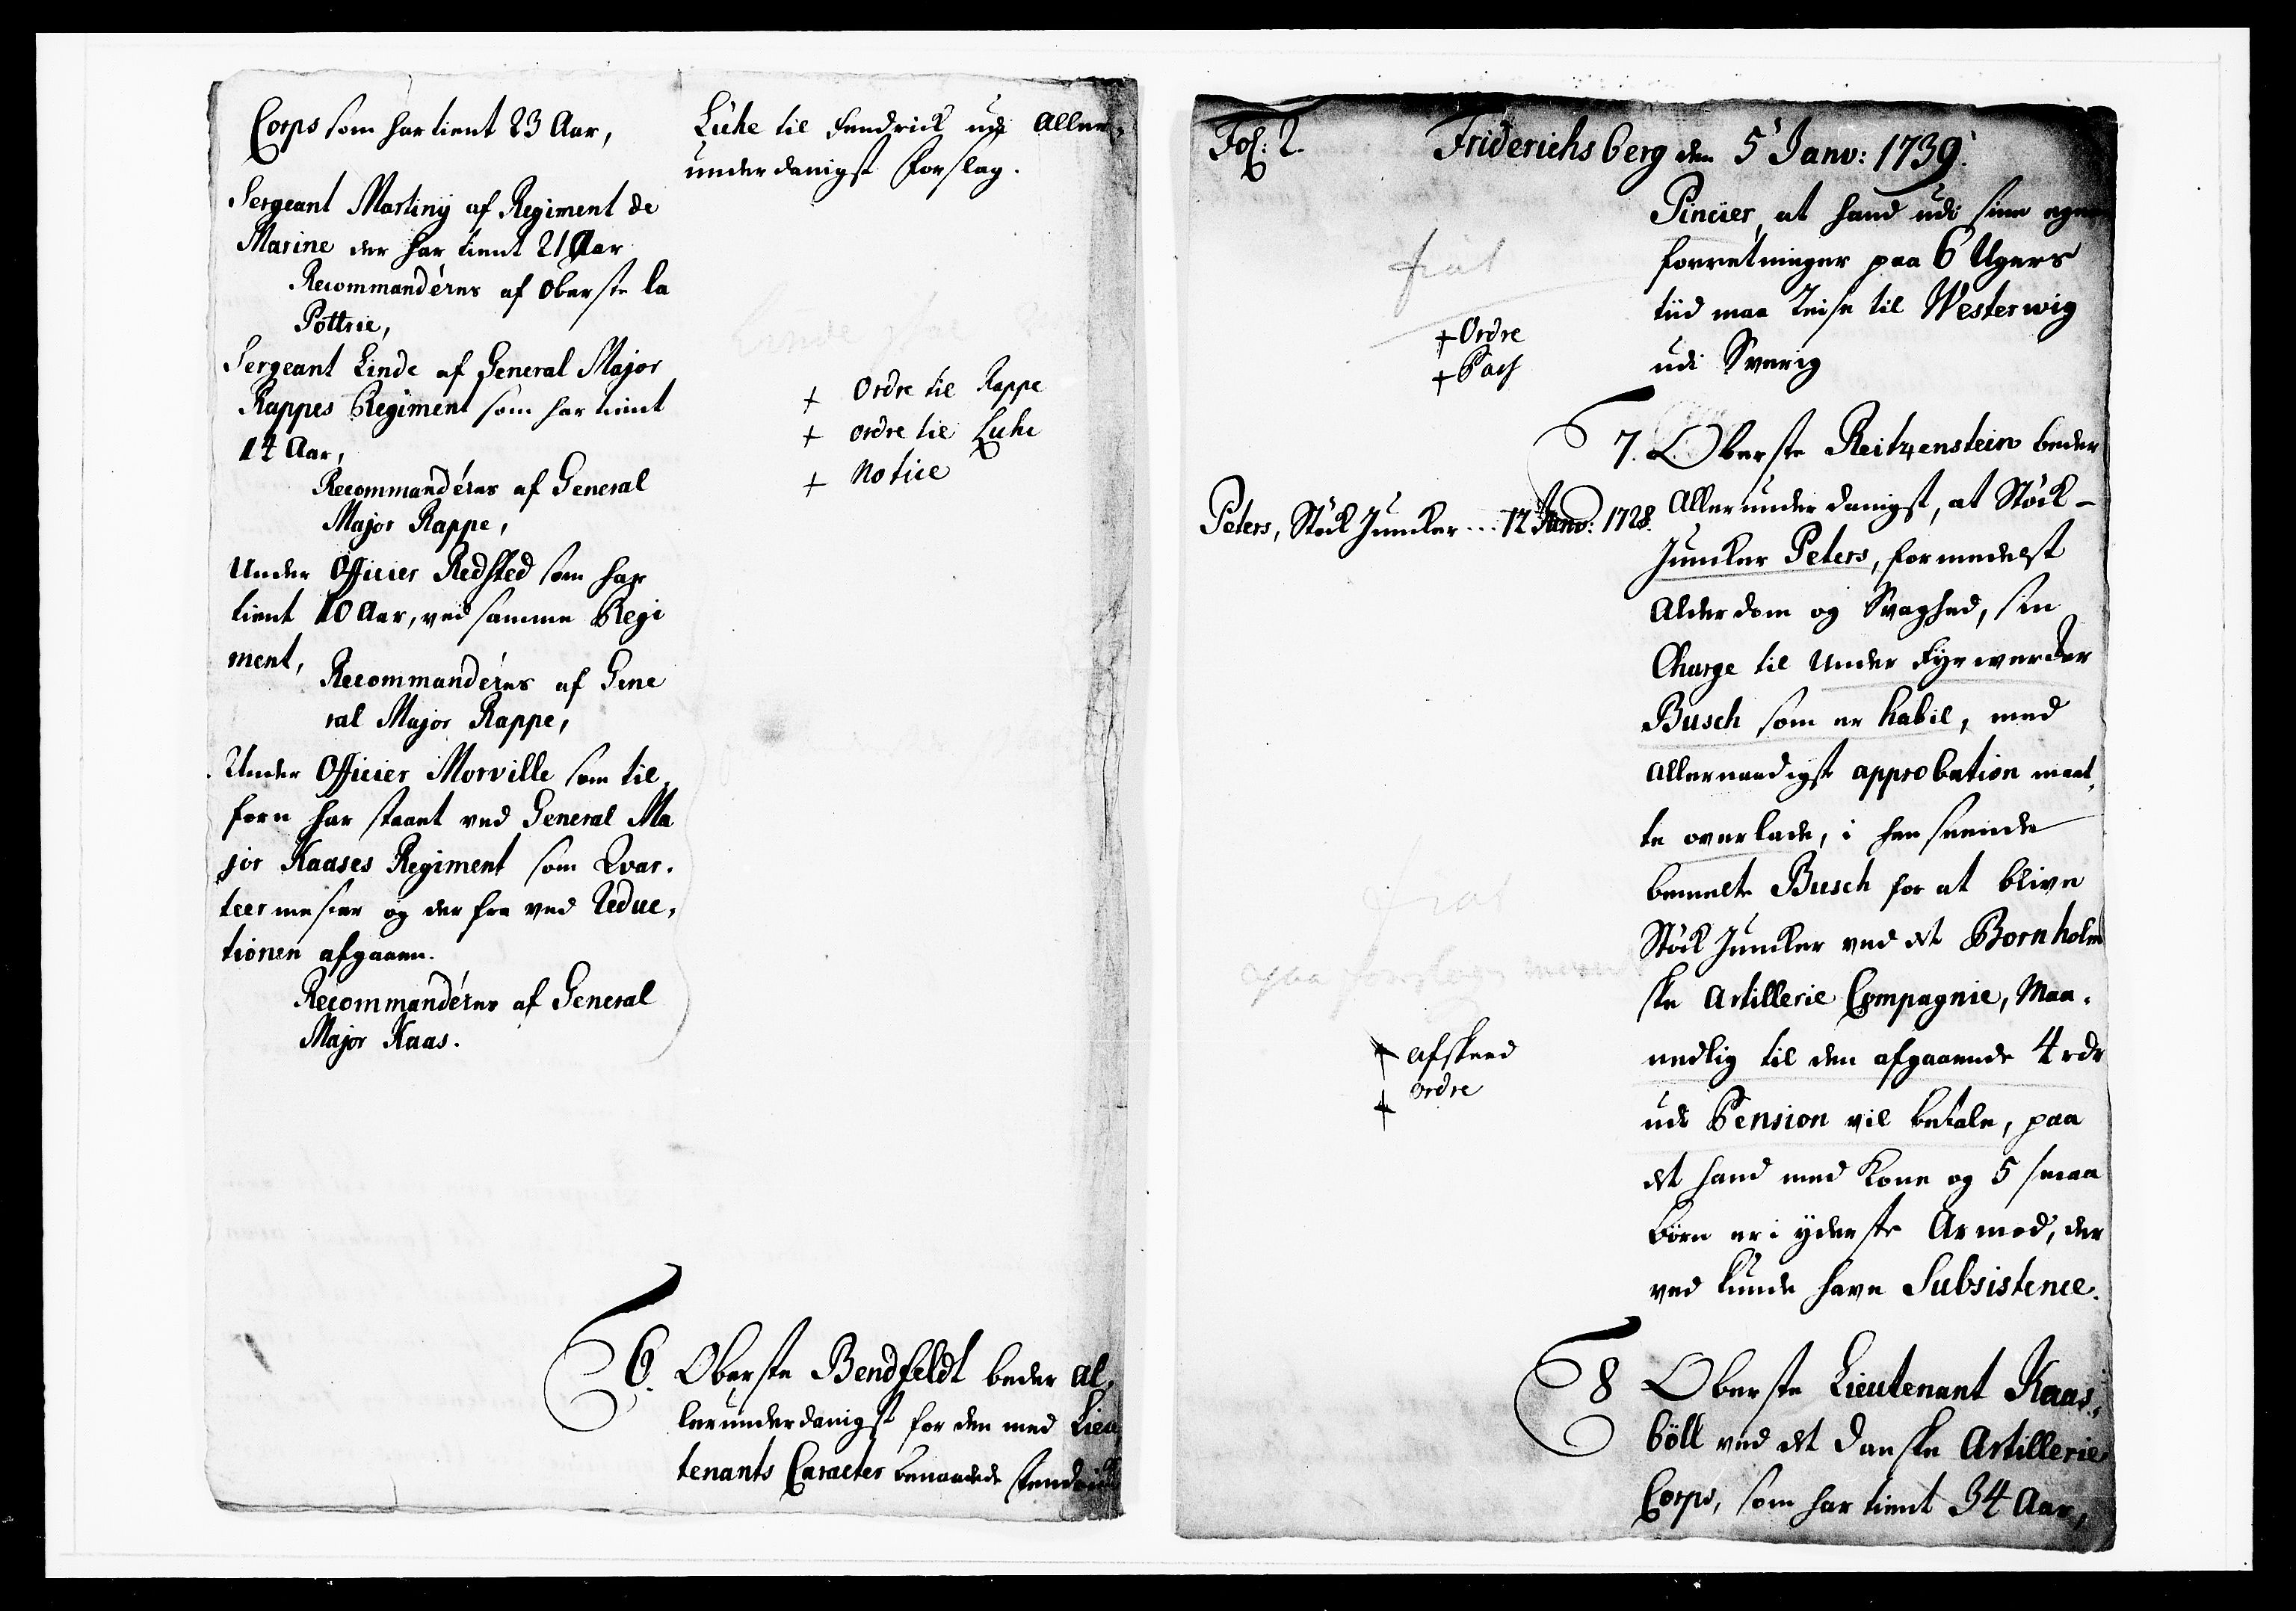 Corps som har tient 23 Aar,
Sergeant Martiny af Regiment de
Marine der har tient 21 Aar
Recommanderes af Oberste la
Pottrie,
Sergeant Linde af General Major
Rappes Regiment som har tient
14 Aar,
Recommanderes af General
Major Rappe,
Under Officier Redsted som har
tient 10 Aar, ved samme Regi
ment,
Recommanderes af Gene
ral Major Rappe,
Under Officier Morville som til
forn har staaet ved General Ma
jor Kaases Regiment som Qvar-
teermester og derfra ved Reduc-
tionen afgaaen.
Recommanderes af General
Major Kaas.
Lühe til Fendrick udi Aller-
underdanigst Forslag.
+ Ordre til Rappe
+ ordre til Luhe
+ Notice
6. Oberste Bendfeldt beder Al-
lerunderdanigst for den med Lieu
tenants Caracter benaadede Fendrick
Fol: 2.
Friderichsberg den 5 Janv: 1739.
Pincier, at hand udi sine egne
forretninger paa 6 Ugers
tiid maa Reise til Westerwig
udi Sverig
fiat
+ Ordre
+ Pass
7. Oberste Reitzenstein beder
Allerunderdanigst, at Stöck-
Juncker Peters, formedelst
Alderdom og Svaghed, sin
Charge til Under Fyrwerder
Busch som er habil, med
Allernaadigst approbation maat-
te overlade, i henseende
bemelte Busch for at blive
Stöck Juncker ved det Bornholm
ske Artillerie Compagnie, Maa-
nedlig til den afgaaende 4 rdr
udi Pension vil betale, paa
det hand med Kone og 5 smaa
børn er i yderste Armod, der
ved kunde have Subsistence.
Peters, Stöck Juncker ... 12 Janv: 1728.
fiat
+ Afskeed
+ ordre
8 Oberste Lieutenant Kaas-
böll ved det Danske Artillerie
Corps, som har tient 34 Aar,